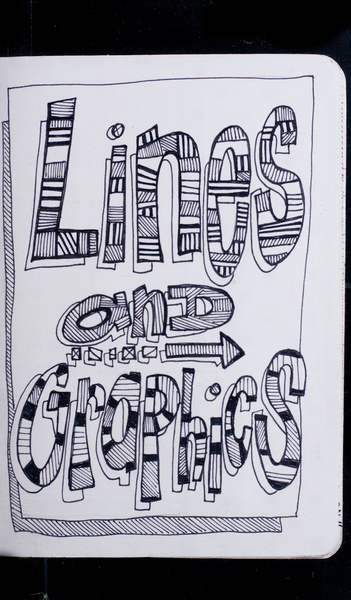 Lines
and
Graphics